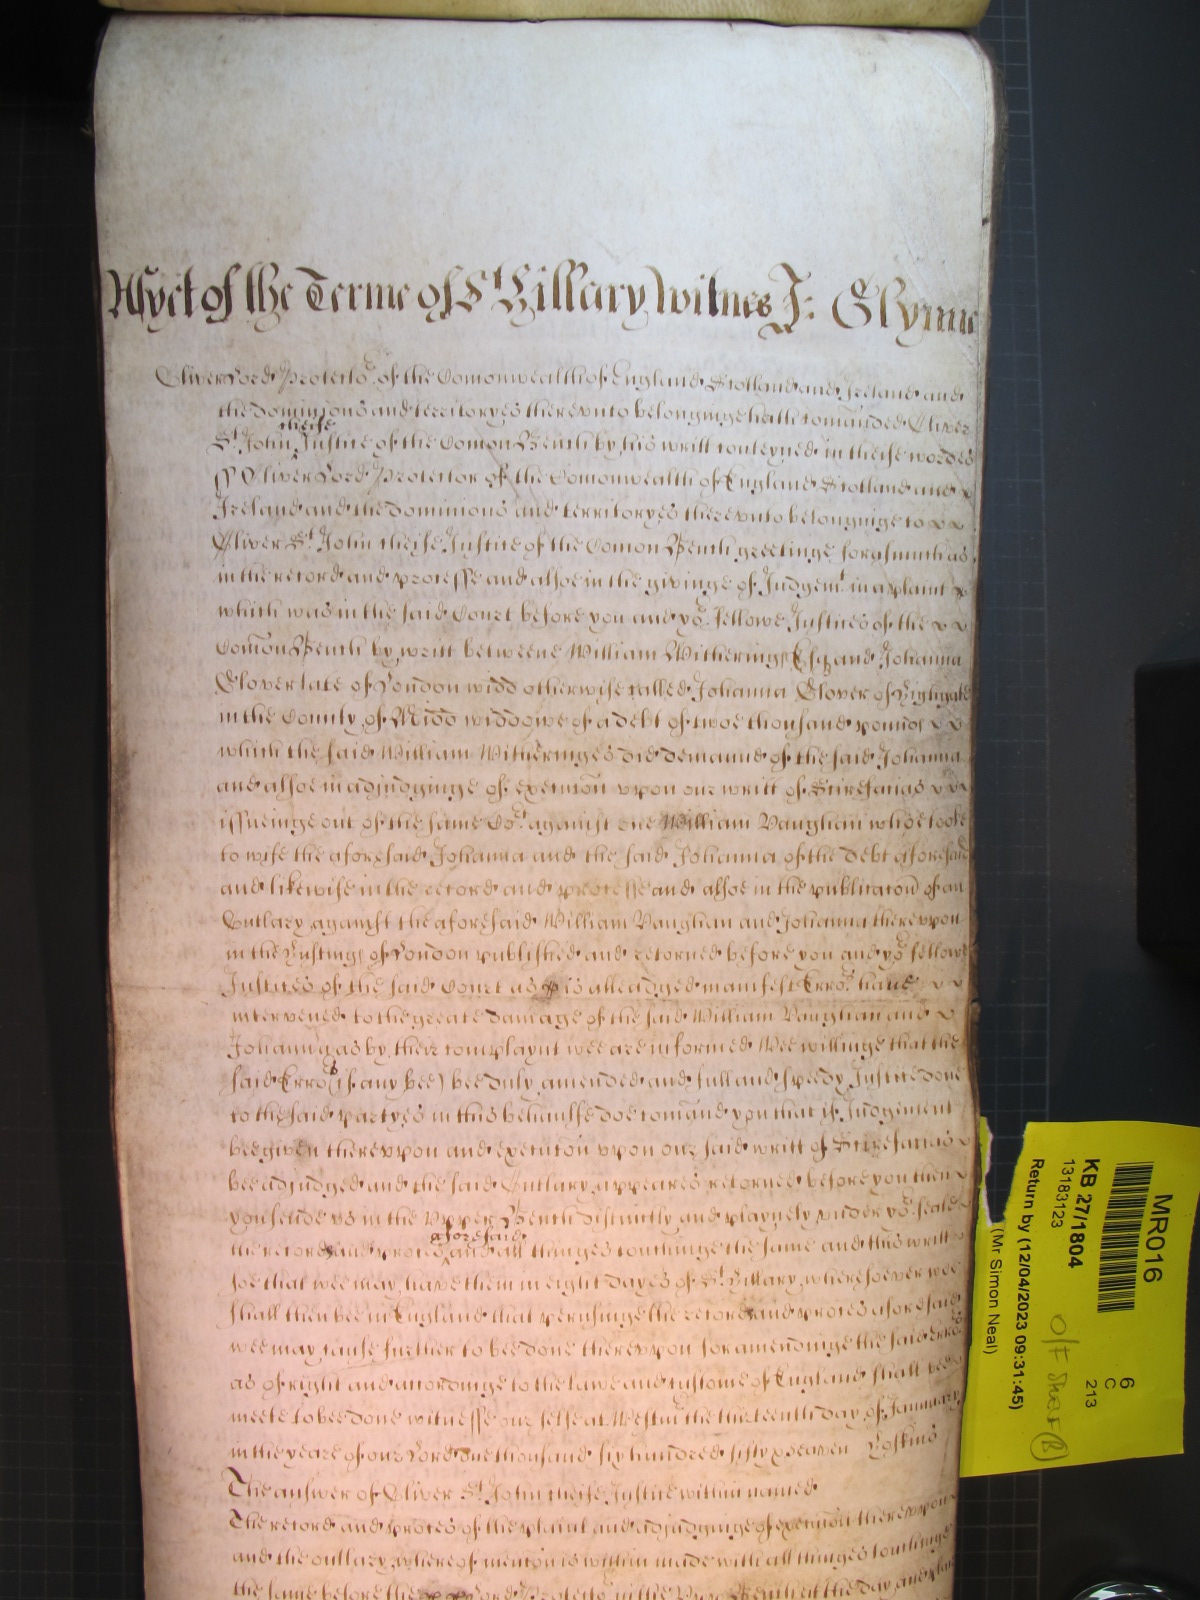 Yet of the Terme of St Hillary witnes J: Glynne
Oliver Lord Protector of the Comonwealth of England Scotland and Ireland and
the dominions and territoryes therevnto belonginge hath comanded Oliver
cheife
St John Justice of the Comon Bench by his writt conteyned in theise wordes
ss Oliver Lord Protector of the Comonwealth of England Scotland and
Ireland and the dominions and territoryes therevnto belonginge to
Oliver St John cheife Justice of the Comon Bench greetinge forasmuch as
in the record and processe and alsoe in the givinge of Judgemt in a plaint
which was in the said Court before you and yor fellowe Justices of the
Comon Bench by writt betweene William Witherings Esq and Johanna
Glover late of London widd otherwise called Johanna Glover of Highgate
in the County of Midd widdowe of a debt of twoe thousand pounds
which the said William Witheringes did demaund of the said Johanna
and alsoe in adjudginge of execucon vpon our writt of Scirefacias
issueinge out of the same Cort against one William Vaughan whoe tooke
to wife the aforesaid Johanna and the said Johanna of the debt aforesaid
and likewise in the record and processe and alsoe in the publicacon of an
Outlary against the aforesaid William Vaughan and Johanna therevpon
in the Hustings of London published and retorned before you and yor fellowe
Justices of the said Court as is alleadged manifest Error have
intervened to the greate damage of the said William Vaughan and
Johanna as by their complaynt wee are informed Wee willinge that the
said Error (if any bee) bee duly amended and full and speedy Justice done
to the said partyes in this behaulfe doe comand you that if Judgement
bee given therevpon and execucon vpon our said writt of Scirefacias
bee adjudged and the said Outlary appeares retorned before you then
you sende vs in the Vpper Bench distinctly and playnely vnder yor seale
aforesaid
the record and proces and all thinges touchinge the same and this writt
soe that wee may have them in eight dayes of St Hillary wheresoever wee
shall then bee in England that perusinge the record and proces aforesaid
wee may cause further to bee done therevpon for amendinge the said error
as of right and accordinge to the lawe and custome of England shall bee
meete to bee done witnesse our selfe at Westm the thirteenth day of January
in the yeare of our Lord one thousand six hundred fifty seaven Hoskins
The answer of Oliver St John cheife Justice within named
The record and proces of the plaint and adjudginge of execucon therevpon
and the outlary whereof mencon is within made with all thinges touchinge
the same before the Lord Protector in the Vpper Bench at the day and
MR016
KB 27/1804
13183123
Return by (12/04/2023 09:31:45)
(Mr Simon Neal)
6
C
213